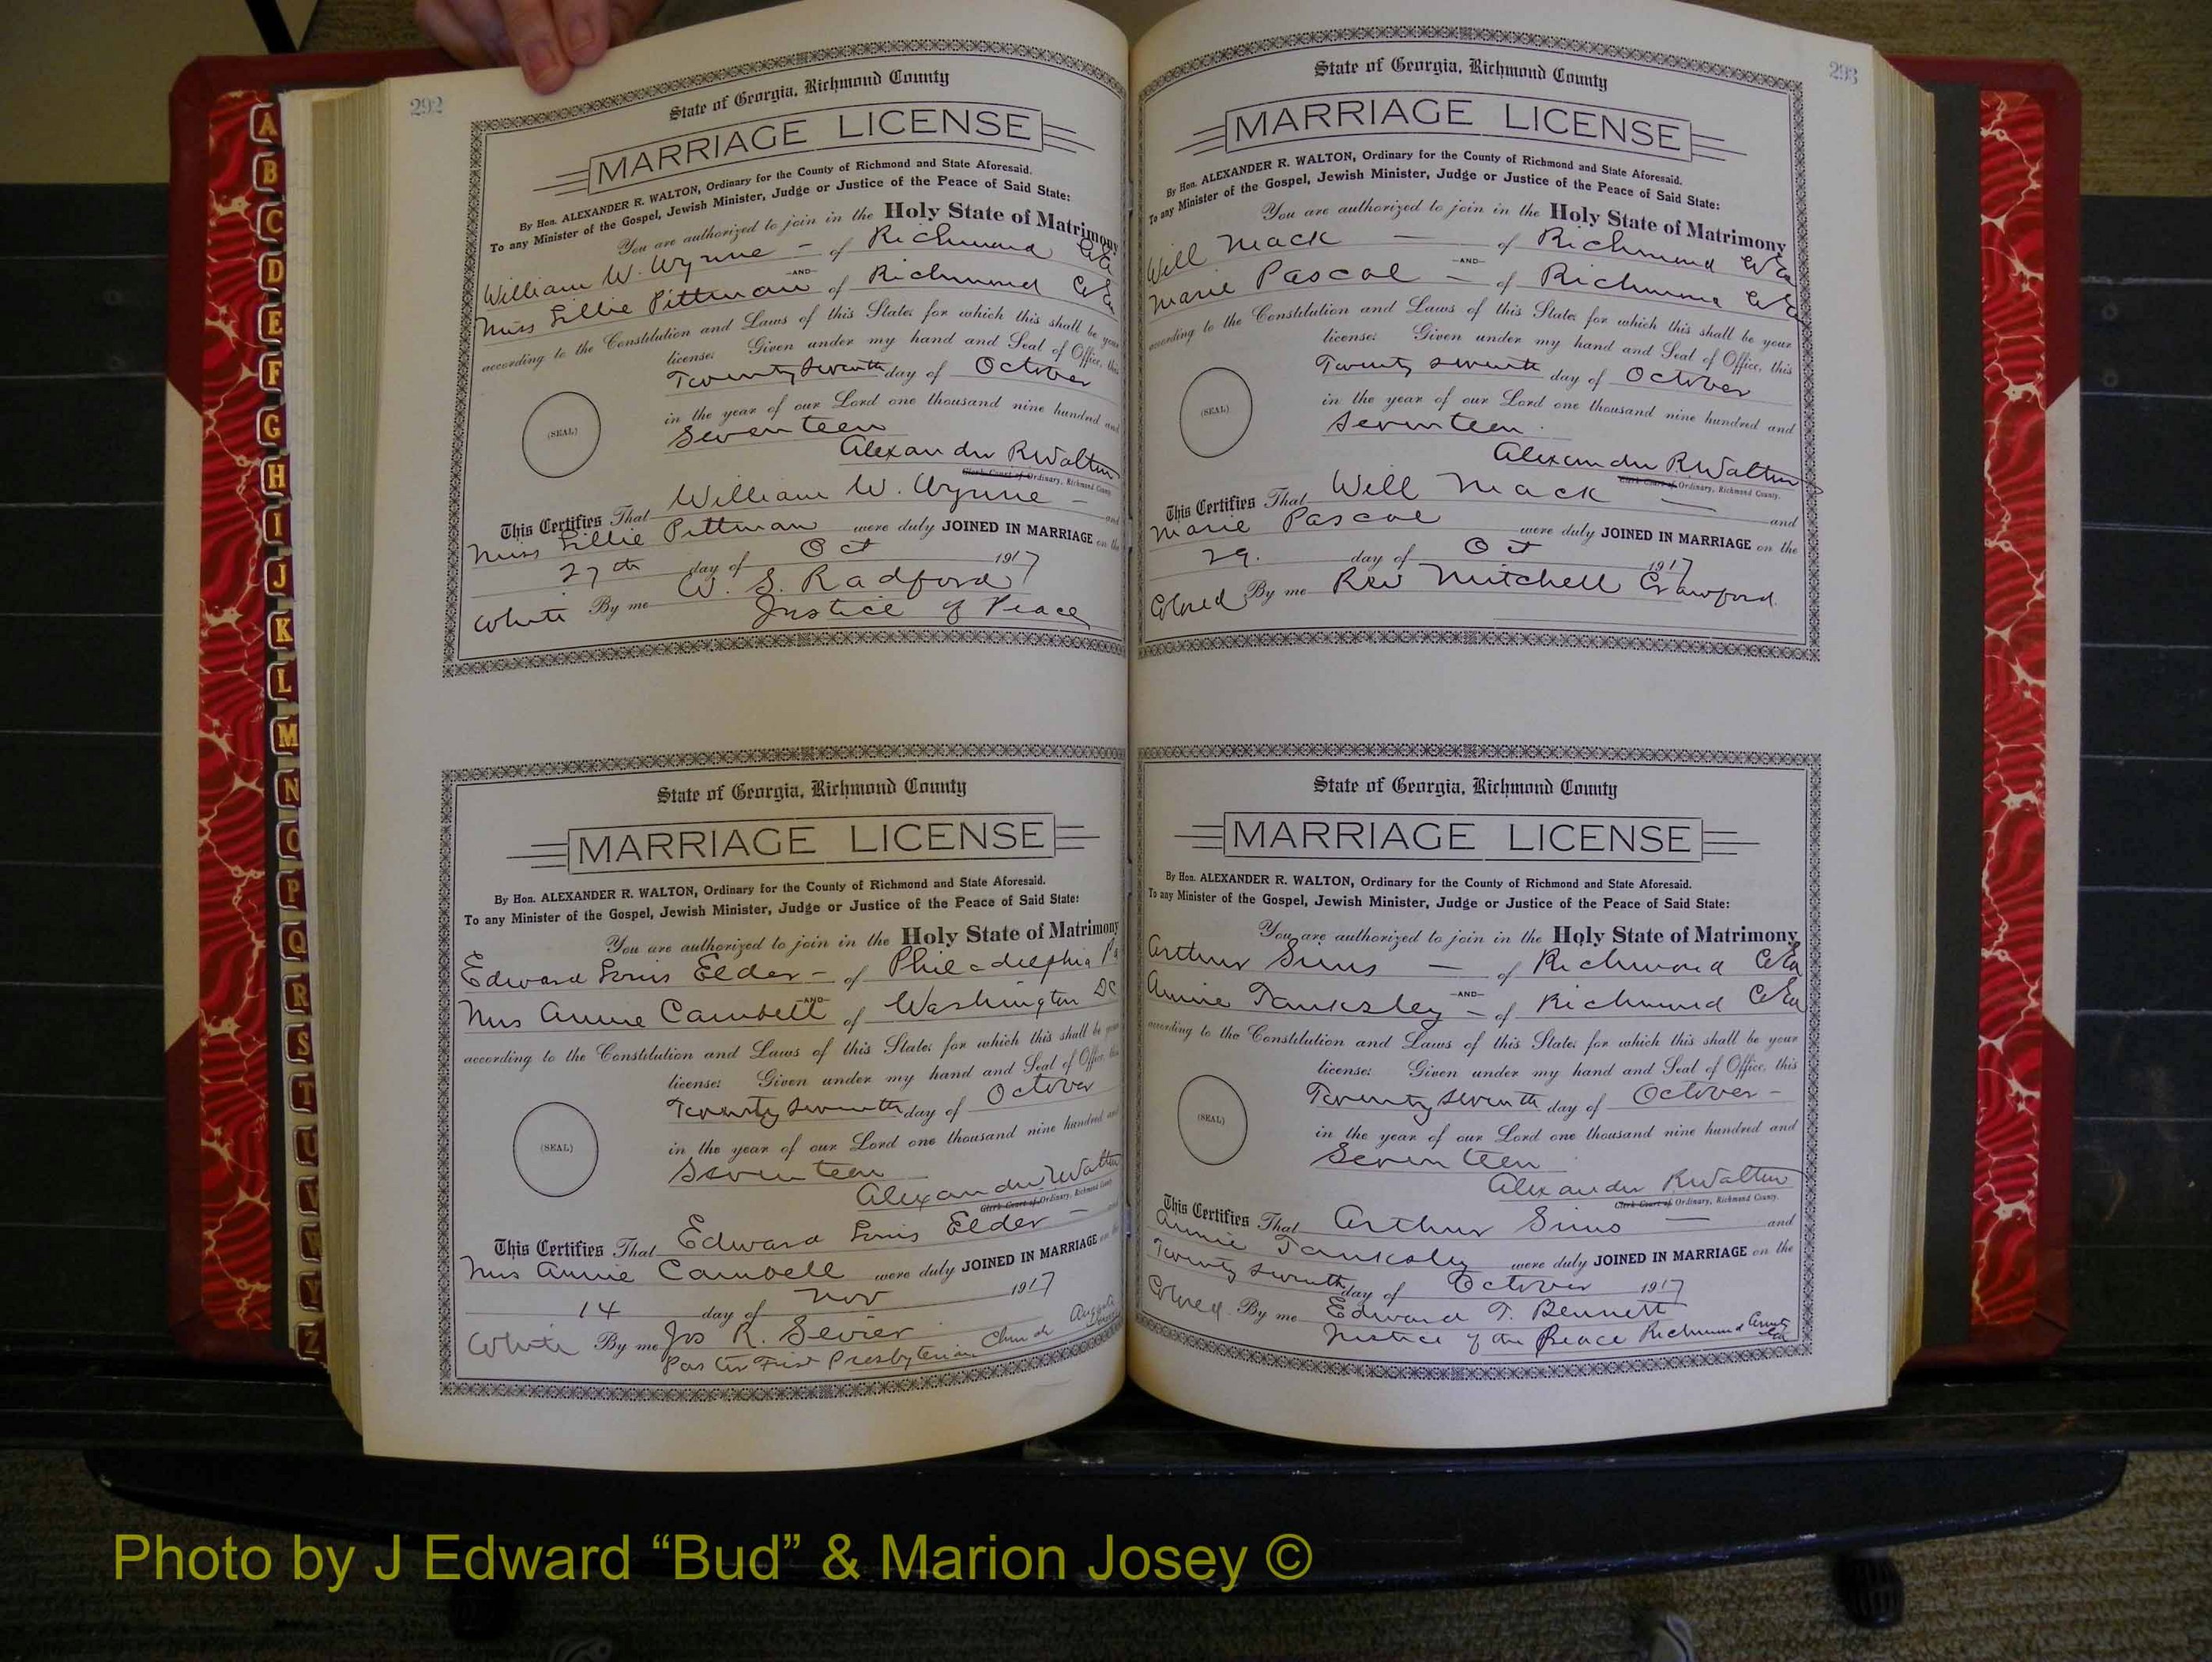 292
State of Georgia, Richmond County
MARRIAGE LICENSE
By Hon. ALEXANDER R. WALTON, Ordinary for the County of Richmond and State Aforesaid.
To any Minister of the Gospel, Jewish Minister, Judge or Justice of the Peace of Said State:
You are authorized to join in the Holy State of Matrimony
William W. Wynne — of Richmond Co Ga
—AND—
Miss Lillie Pittman of Richmond Co Ga
according to the Constitution and Laws of this State, for which this shall be your
license: Given under my hand and Seal of Office, this
Twenty Seventh day of October
in the year of our Lord one thousand nine hundred and
Seventeen
(SEAL)
Alexander R Walton
Clerk Court of Ordinary, Richmond County
This Certifies That William W. Wynne — and
Miss Lillie Pittman were duly JOINED IN MARRIAGE on the
27th day of Oct 1917
White By me W. S. Radford
Justice of Peace
State of Georgia, Richmond County
MARRIAGE LICENSE
By Hon. ALEXANDER R. WALTON, Ordinary for the County of Richmond and State Aforesaid.
To any Minister of the Gospel, Jewish Minister, Judge or Justice of the Peace of Said State:
You are authorized to join in the Holy State of Matrimony
Edward Louis Elder — of Philadelphia Pa
—AND—
Mrs Annie Cambell of Washington DC
according to the Constitution and Laws of this State, for which this shall be your
license: Given under my hand and Seal of Office, this
Twenty Seventh day of October
in the year of our Lord one thousand nine hundred and
Seventeen
(SEAL)
Alexander R Walton
Clerk Court of Ordinary, Richmond County
This Certifies That Edward Louis Elder — and
Mrs Annie Cambell were duly JOINED IN MARRIAGE on the
14 day of Nov 1917
White By me Jos R. Sevier
Pastor First Presbyterian Church Augusta
293
State of Georgia, Richmond County
MARRIAGE LICENSE
By Hon. ALEXANDER R. WALTON, Ordinary for the County of Richmond and State Aforesaid.
To any Minister of the Gospel, Jewish Minister, Judge or Justice of the Peace of Said State:
You are authorized to join in the Holy State of Matrimony
Will Mack — of Richmond Co Ga
—AND—
Marie Pascoe — of Richmond Co Ga
according to the Constitution and Laws of this State, for which this shall be your
license: Given under my hand and Seal of Office, this
Twenty seventh day of October
in the year of our Lord one thousand nine hundred and
Seventeen.
(SEAL)
Alexander R. Walton
Clerk Court of Ordinary, Richmond County.
This Certifies That Will Mack — and
Marie Pascoe were duly JOINED IN MARRIAGE on the
29. day of Oct 1917
Colored By me Rev Mitchell Crawford.
State of Georgia, Richmond County
MARRIAGE LICENSE
By Hon. ALEXANDER R. WALTON, Ordinary for the County of Richmond and State Aforesaid.
To any Minister of the Gospel, Jewish Minister, Judge or Justice of the Peace of Said State:
You are authorized to join in the Holy State of Matrimony
Arthur Sims — of Richmond Co Ga
—AND—
Annie Tanksley — of Richmond Co Ga
according to the Constitution and Laws of this State, for which this shall be your
license: Given under my hand and Seal of Office, this
Twenty Seventh day of October —
in the year of our Lord one thousand nine hundred and
Seventeen
(SEAL)
Alexander R Walton
Clerk Court of Ordinary, Richmond County.
This Certifies That Arthur Sims — and
Annie Tanksley were duly JOINED IN MARRIAGE on the
Twenty seventh day of October 1917
Colored. By me Edward T. Bennett
Justice of the Peace Richmond County Ga
A
B
C
D
E
F
G
H
I
J
K
L
M
N
O
P
Q
R
S
T
U
V
W
Y
Z
Photo by J Edward “Bud” & Marion Josey ©